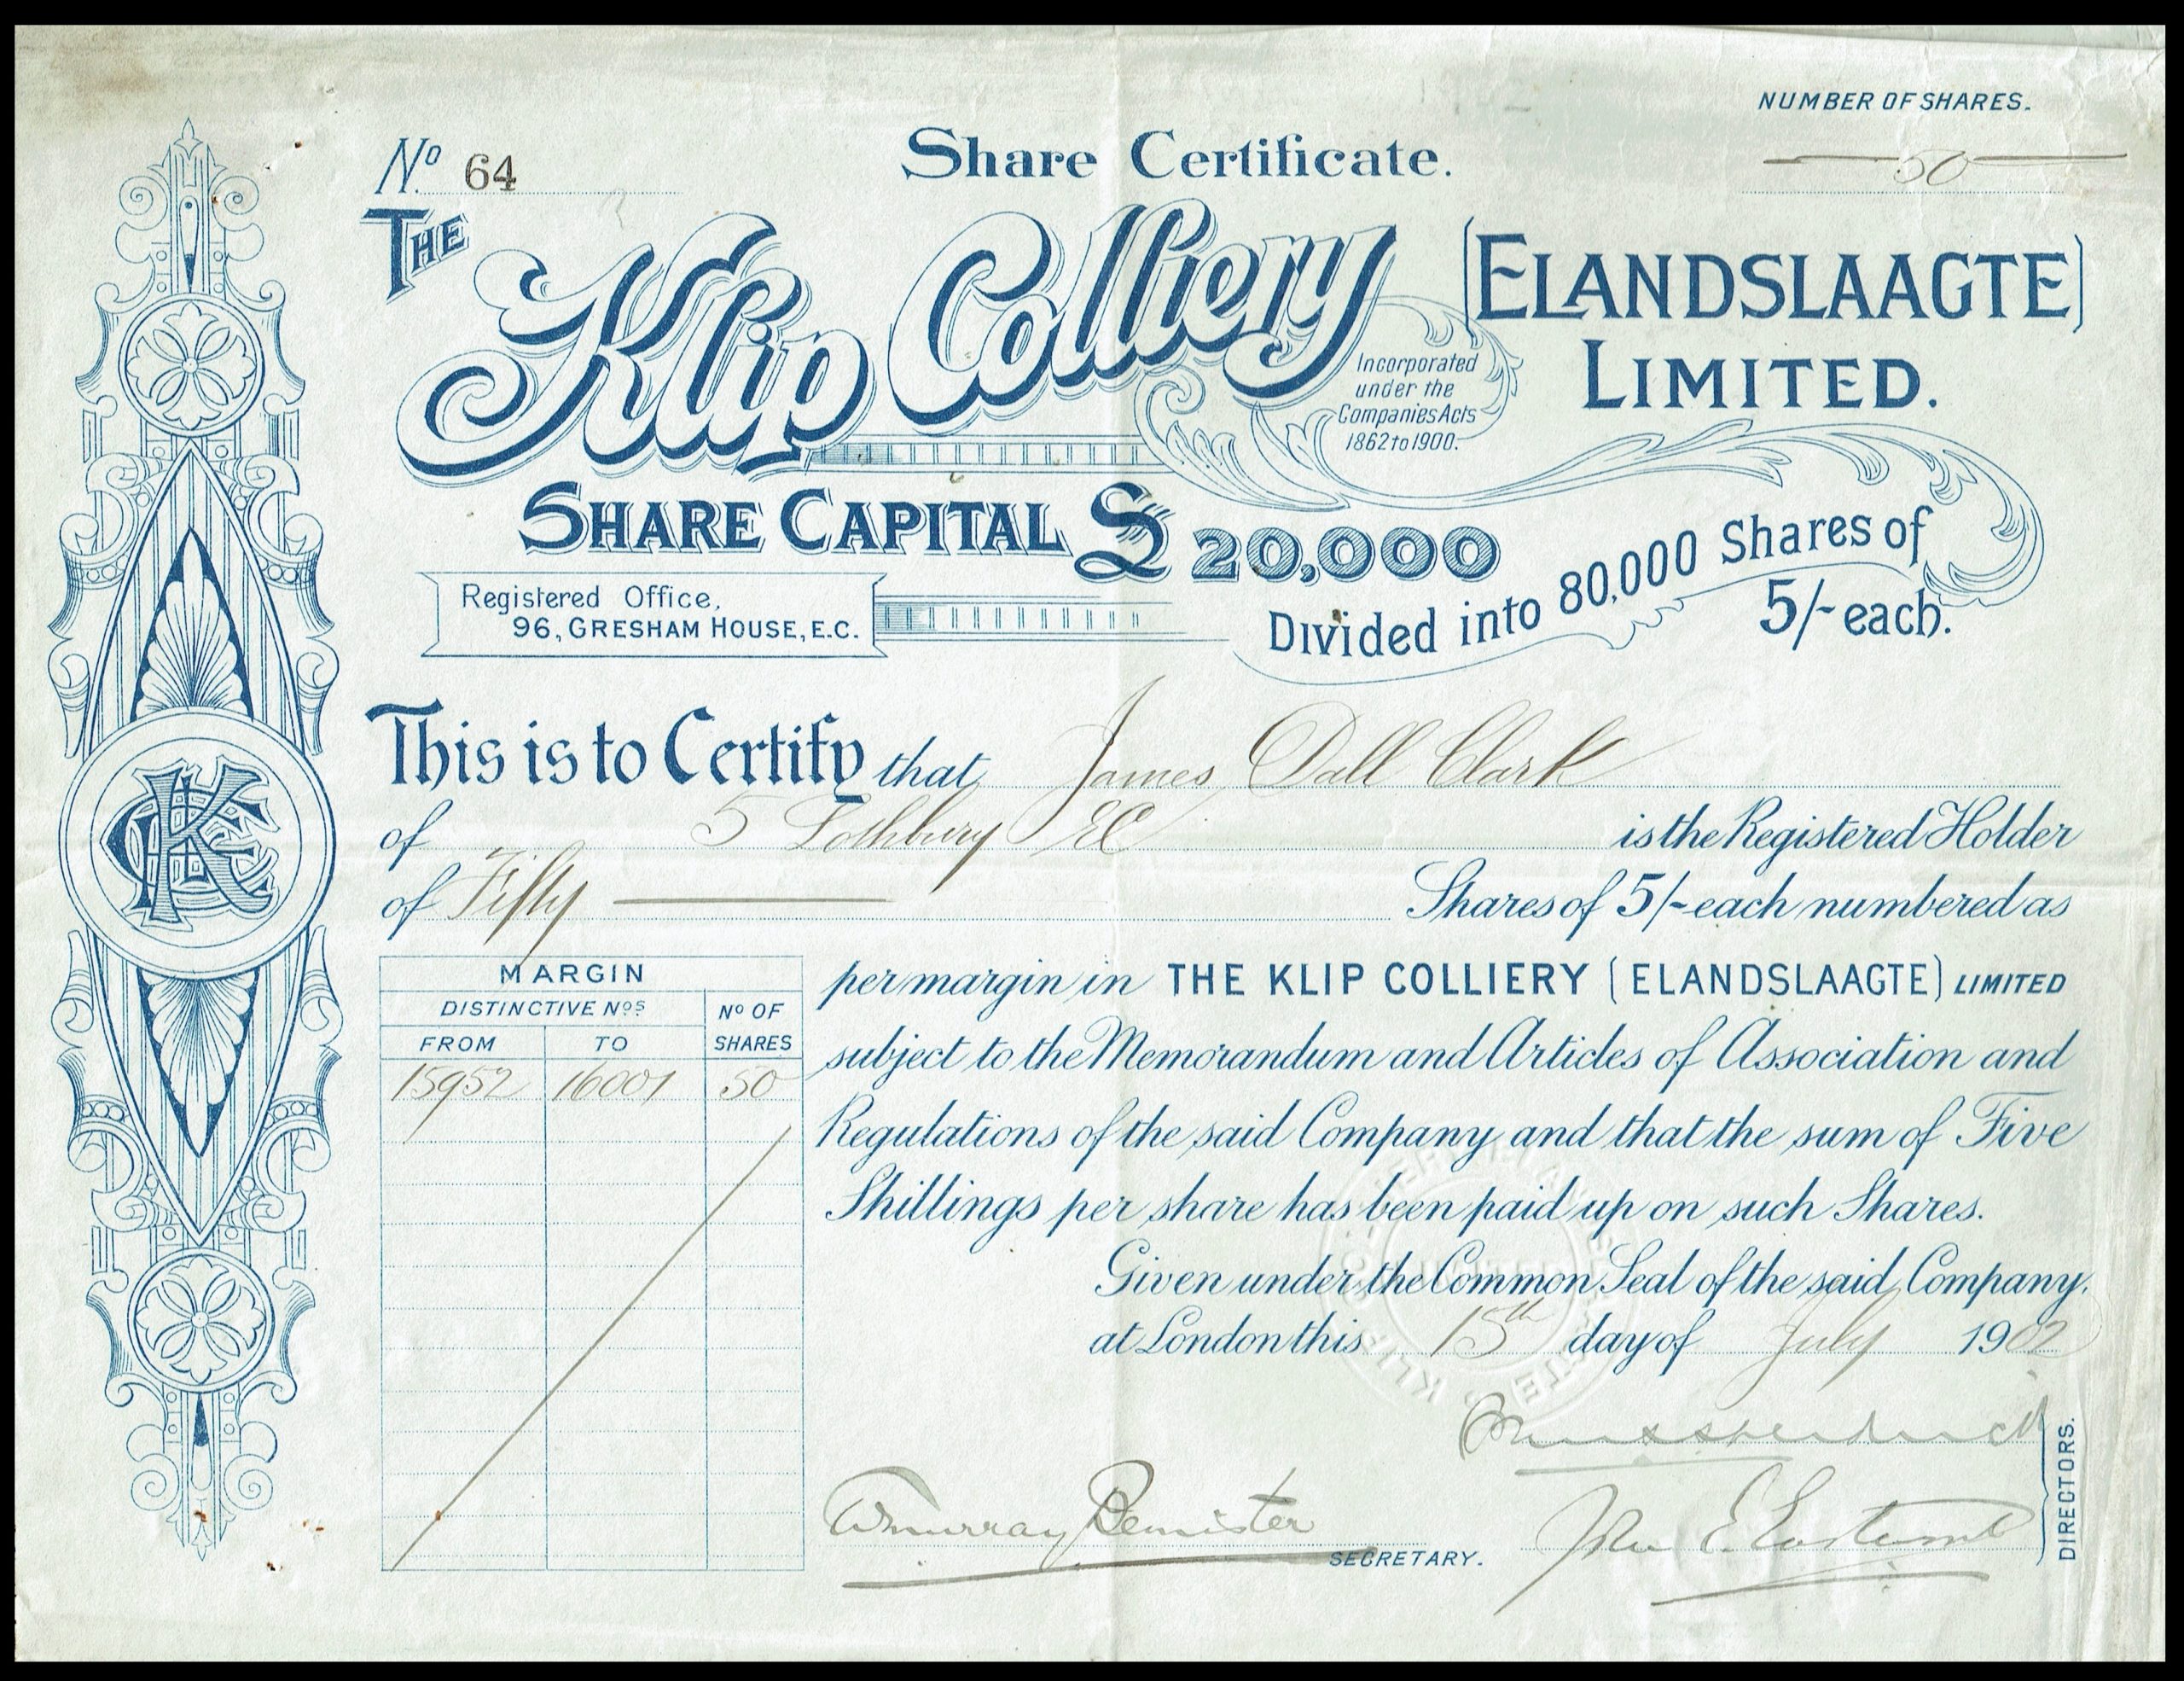 NUMBER OF SHARES.
Nº 64
Share Certificate.
50
THE Klip Colliery (ELANDSLAAGTE) LIMITED.
Incorporated
under the
Companies Acts
1862 to 1900.
SHARE CAPITAL £20,000
Divided into 80,000 Shares of
5/- each.
Registered Office,
96, GRESHAM HOUSE, E.C.
This is to Certify that James Dall Clark
of 5 Lothbury EC is the Registered Holder
of Fifty Shares of 5/- each numbered as
MARGIN
DISTINCTIVE Nºs
Nº OF SHARES
FROM TO
15952 16001 50
per margin in THE KLIP COLLIERY (ELANDSLAAGTE) LIMITED
subject to the Memorandum and Articles of Association and
Regulations of the said Company and that the sum of Five
Shillings per share has been paid up on such Shares.
Given under the Common Seal of the said Company,
at London this 15th day of July 1902
Murray Bemister
SECRETARY.
John E.
DIRECTORS.